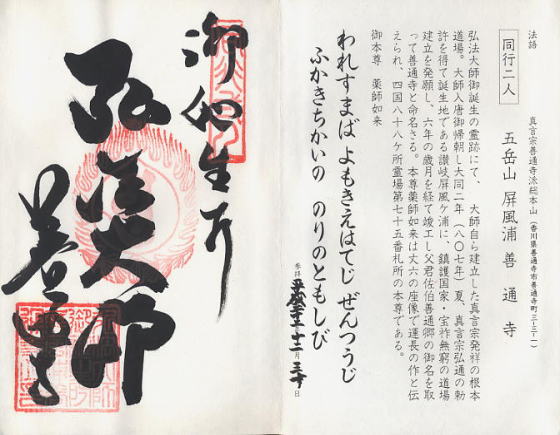 法語
同行二人
真言宗善通寺派総本山(香川県善通寺市善通寺町三-三-一)
五岳山 屏風浦 善通寺
弘法大師御誕生の霊跡にて、 大師自ら建立した真言宗発祥の根本
道場。大師入唐御帰朝し大同二年(八〇七年)夏、真言宗弘通の勅
許を得て誕生地である讃岐屏風ケ浦に、鎮護国家・宝祚無窮の道場
建立を発願し、六年の歳月を経て竣工し父君佐伯善通卿の御名を取
って善通寺と命名さる。本尊薬師如来は丈六の座像で運長の作と伝
えられ、四国八十八ケ所霊場第七十五番札所の本尊である。
御本尊 薬師如来
われすまば よもきえはてじ ぜんつうじ
ふかきちかいの のりのともしび
参拝 平成 年十二月三十日
御誕生所
弘法大師
善通寺